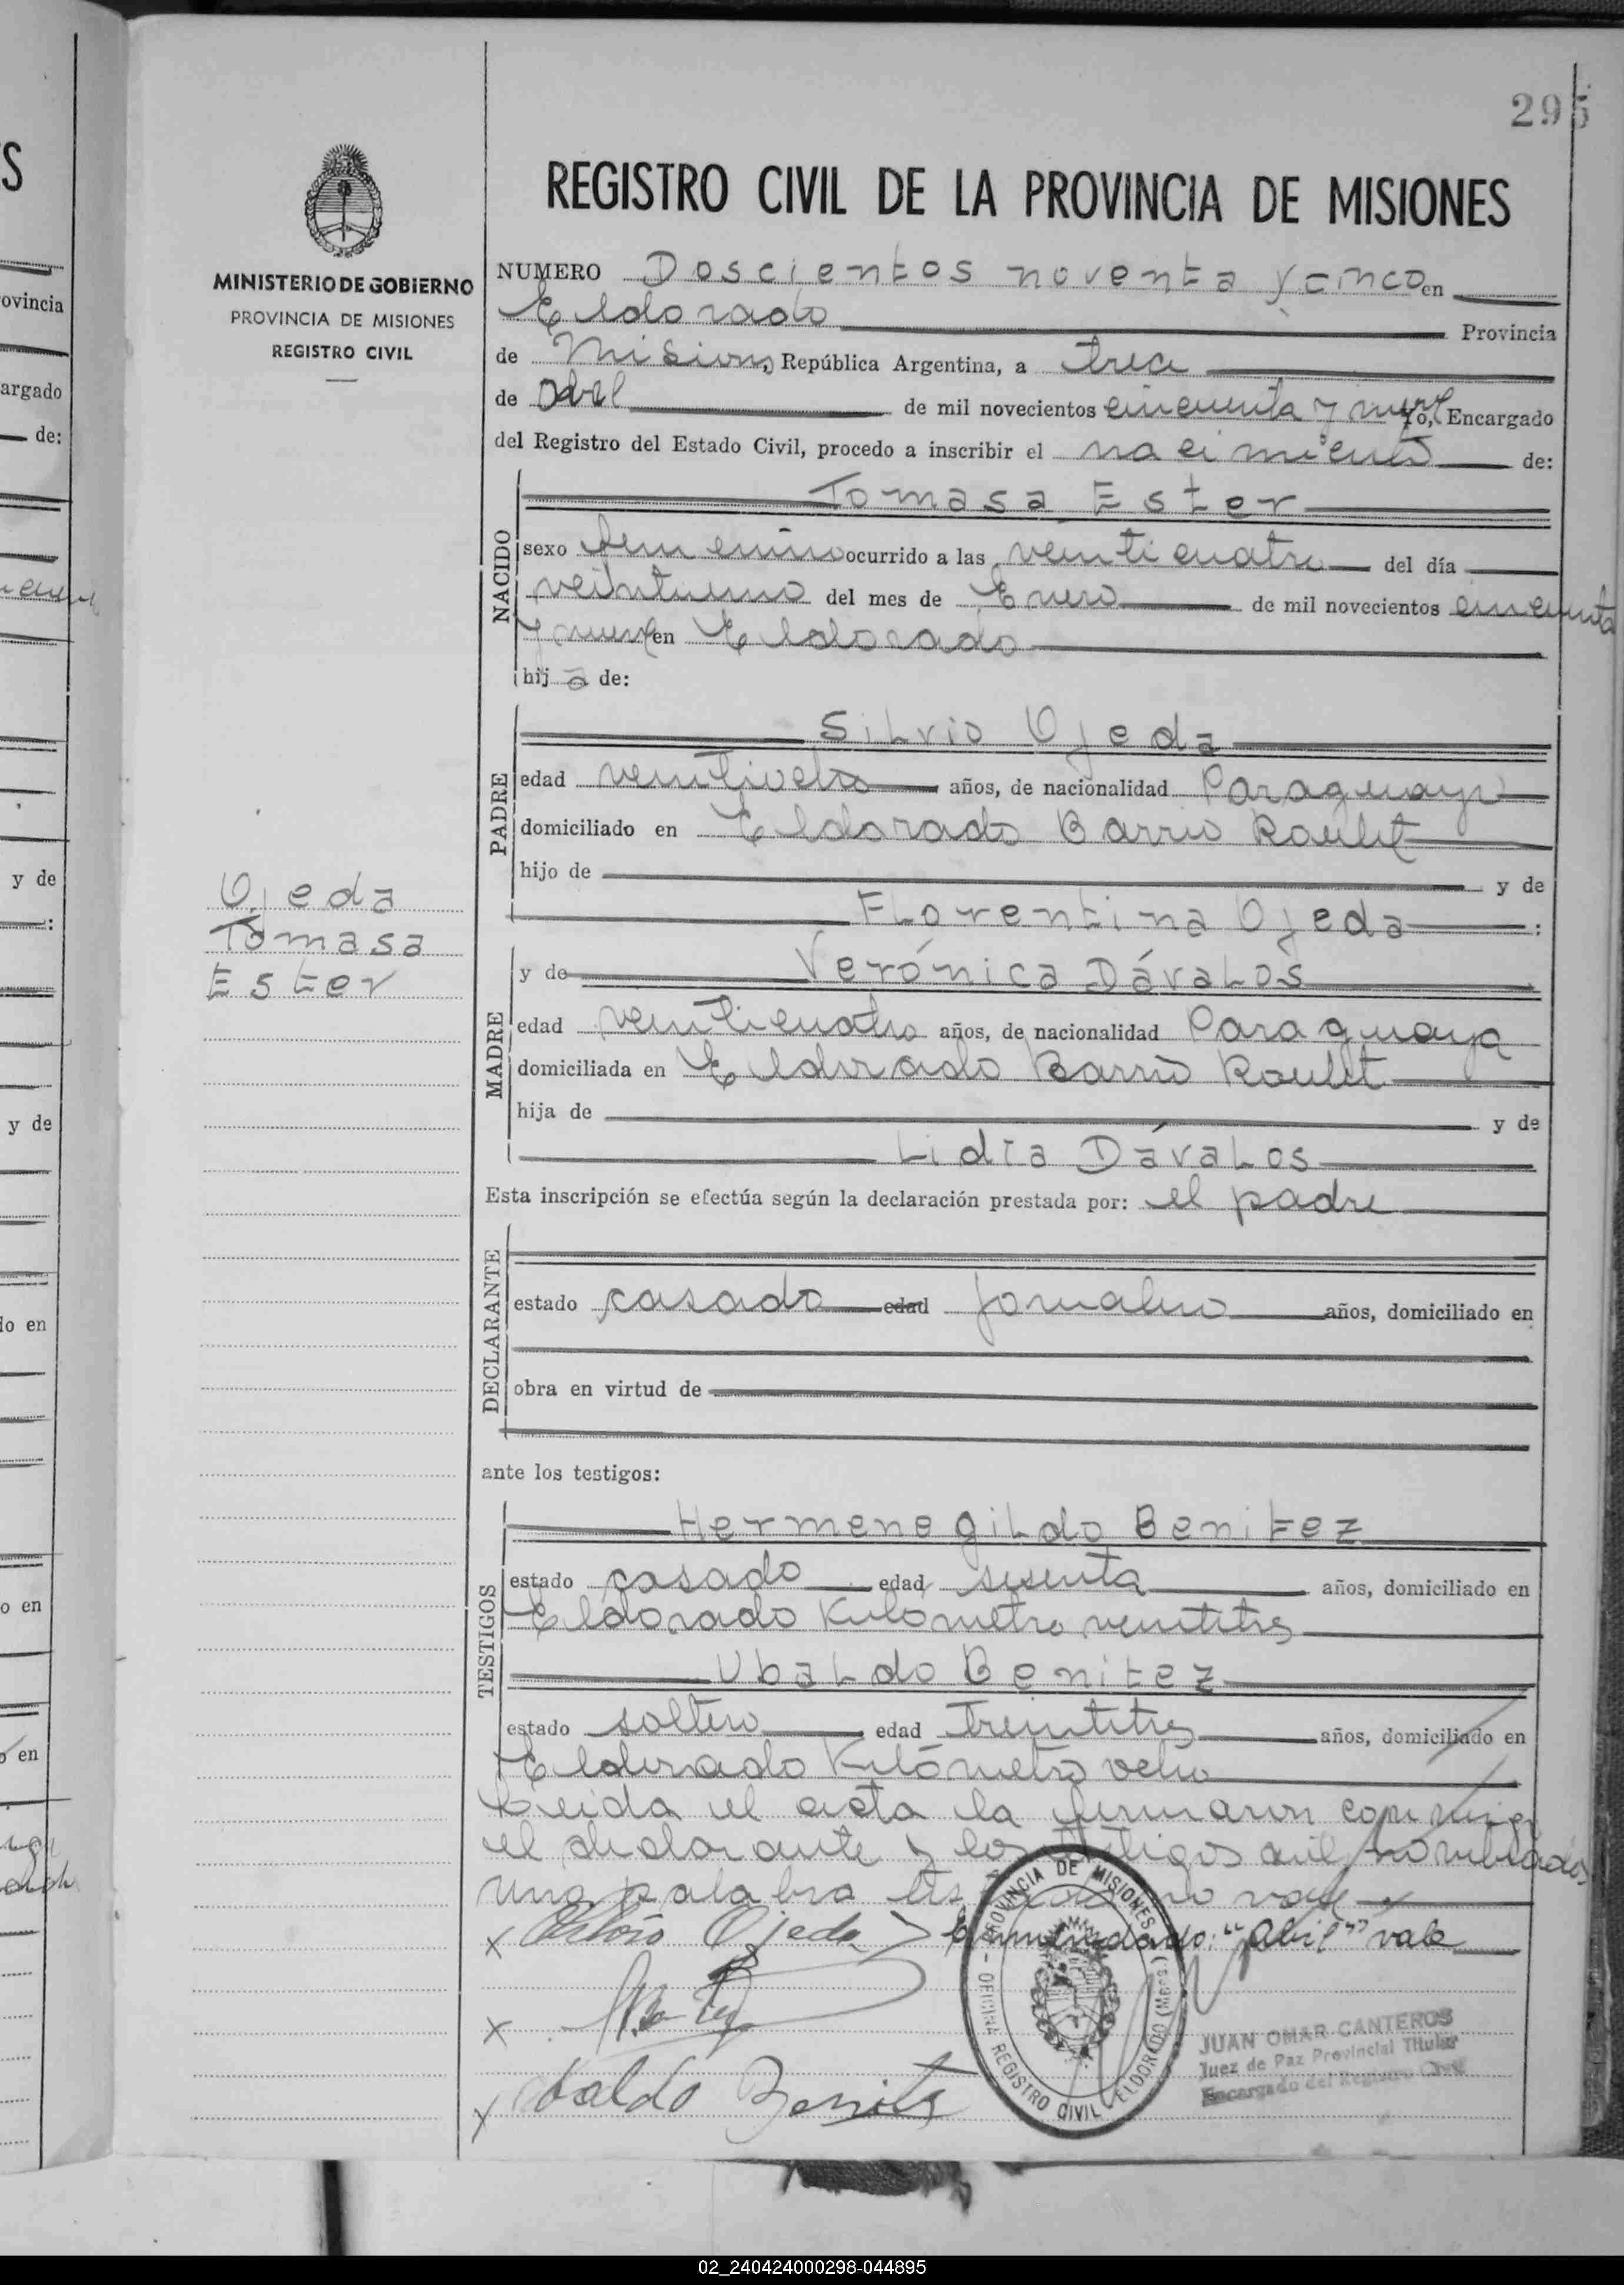 295
REGISTRO CIVIL DE LA PROVINCIA DE MISIONES
MINISTERIO DE GOBIERNO
PROVINCIA DE MISIONES
REGISTRO CIVIL
NUMERO Doscientos noventa y cinco en
Eldorado Provincia
de Misiones, República Argentina, a trece
de Abril de mil novecientos cincuenta y nueve Yo, Encargado
del Registro del Estado Civil, procedo a inscribir el nacimiento de:
NACIDO
Tomasa Ester
sexo femenino ocurrido a las veinticuatro del día
veintiuno del mes de Enero de mil novecientos cincuenta
y nueve en Eldorado
hija de:
PADRE
Silvio Ojeda
edad veintiocho años, de nacionalidad Paraguayo
domiciliado en Eldorado Barrio Roulet
hijo de y de
Florentina Ojeda :
Ojeda
Tomasa
Ester
MADRE
y de Verónica Dávalos
edad veinticuatro años, de nacionalidad Paraguaya
domiciliada en Eldorado Barrio Roulet
hija de y de
Lidia Dávalos
Esta inscripción se efectúa según la declaración prestada por: el padre
DECLARANTE
estado casado edad jornalero años, domiciliado en
obra en virtud de
ante los testigos:
TESTIGOS
Hermenegildo Benitez
estado casado edad sesenta años, domiciliado en
Eldorado Kilómetro veintitres
Ubaldo Benitez
estado soltero edad treintitres años, domiciliado en
Eldorado Kilómetro ocho
Leida el acta la firmaron conmigo
el declarante y los testigos
una palabra no vale
Ojeda Enmendado: "Abril" vale
Ubaldo Benitez
PROVINCIA DE MISIONES
OFICINA REGISTRO CIVIL ELDORADO (Mnes)
JUAN OMAR CANTEROS
Juez de Paz Provincial Titular
Encargado del Registro Civil
ovincia
argado
de:
y de
y de
o en
en
02_240424000298-044895